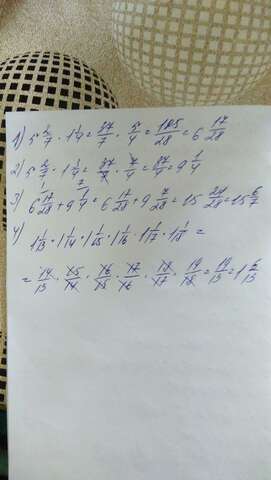 1) 5 2/7 · 1 1/4 = 37/7 · 5/4 = 185/28 = 6 17/28
2) 5 2/7 · 1 3/4 = 37/7 · 7/4 = 37/4 = 9 1/4
3) 6 17/28 + 9 1/4 = 6 17/28 + 9 7/28 = 15 24/28 = 15 6/7
4)
1 1/13 · 1 1/14 · 1 1/15 · 1 1/16 · 1 1/17 · 1 1/18 =
= 14/13 · 15/14 · 16/15 · 17/16 · 18/17 · 19/18 = 19/13 = 1 6/13